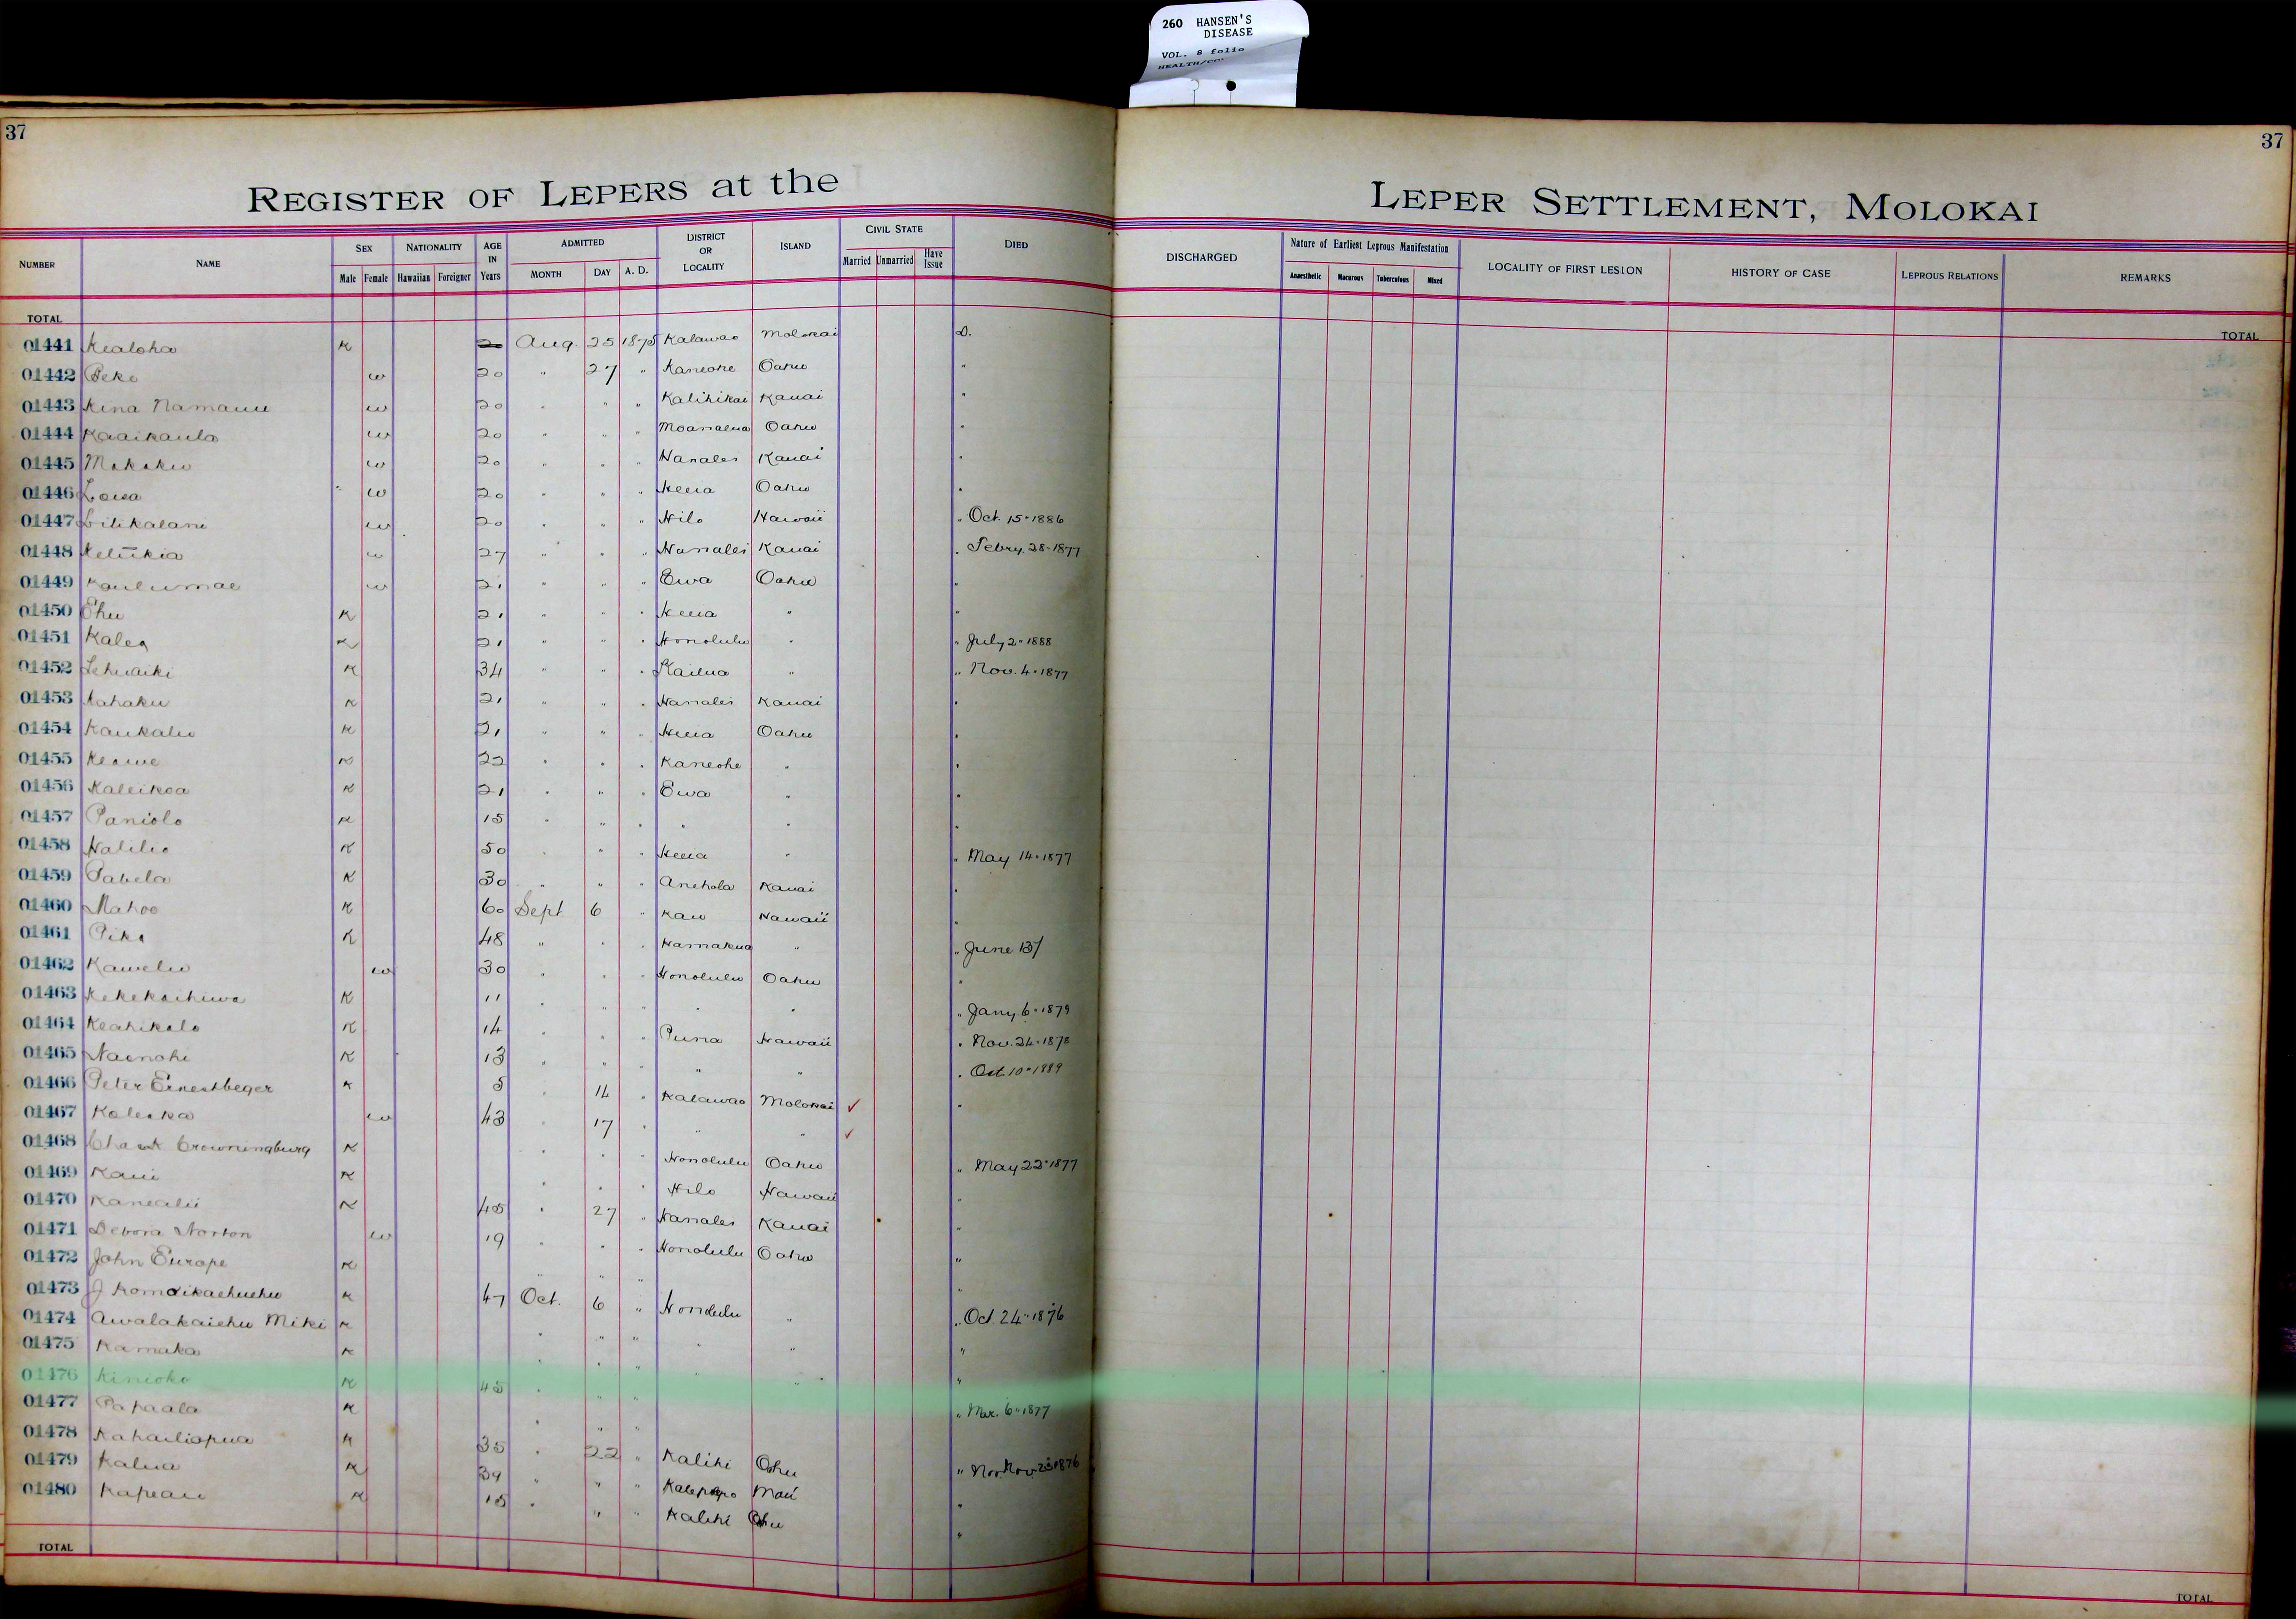 260 HANSEN'S
DISEASE
VOL. 8 folio
37
37
REGISTER OF LEPERS at the
LEPER SETTLEMENT, MOLOKAI
NUMBER NAME SEX Male Female NATIONALITY Hawaiian Foreigner AGE IN Years ADMITTED MONTH DAY A. D. DISTRICT OR LOCALITY ISLAND CIVIL STATE Married Unmarried Have Issue DIED
DISCHARGED Nature of Earliest Leprous Manifestation Anaesthetic Macurous Tuberculous Mixed LOCALITY OF FIRST LESION HISTORY OF CASE LEPROUS RELATIONS REMARKS
TOTAL
TOTAL
01441 Kealoha K 20 Aug. 25 1875 Kalawao Molokai D.
01442 Peke w 20 " 27 " Kaneohe Oahu "
01443 Kina Namauu w 20 " " " Kalihikai Kauai "
01444 Kaaikaula w 20 " " " Moanalua Oahu "
01445 w 20 " " " Hanalei Kauai "
01446 Loisa w 20 " " " Heeia Oahu "
01447 Lilikalani w 20 " " " Hilo Hawaii " Oct. 15-1886
01448 Keliikia w 27 " " " Hanalei Kauai " Febry. 28-1877
01449 Kaulumae w 21 " " " Ewa Oahu "
01450 Ehu K 21 " " " Heeia " "
01451 Kalea K 21 " " " Honolulu " " July 2-1888
01452 Lehuaiki K 34 " " " Kailua " " Nov. 4-1877
01453 Kahaku K 21 " " " Hanalei Kauai "
01454 Kaukaliu K 21 " " " Heeia Oahu "
01455 Keawe K 22 " " " Kaneohe " "
01456 Kaleikoa K 21 " " " Ewa " "
01457 Paniolo K 15 " " " " " "
01458 Halilio K 50 " " " Heeia " " May 14-1877
01459 Pabela K 30 " " " Anehola Kauai "
01460 Mahoe K 60 Sept 6 " Kau Hawaii "
01461 Pika K 48 " " " Hamakua " " June 13/
01462 Kawelu w 30 " " " Honolulu Oahu "
01463 Kekekachiwa K 11 " " " " " " Jany. 6-1879
01464 Keahikolo K 14 " " " Puna Hawaii " Nov. 24-1878
01465 Nainohi K 13 " " " " " " Oct 10-1889
01466 Peter Ernestbeger K 5 " 14 " Kalawao Molokai ✓ "
01467 Koleka w 43 " 17 " " " ✓
01468 Crowningburg K " " " Honolulu Oahu " May 22-1877
01469 Kaui K " " " Hilo Hawaii "
01470 Kanealii K 45 " 27 " Hanalei Kauai "
01471 Debora Norton w 19 " " " Honolulu Oahu "
01472 John Europe K " " " "
01473 J Komoikaehuehu K 47 Oct. 6 " Honolulu " " Oct. 24-1876
01474 Awalakaiehu Miki K " " " " " "
01475 Kamaka K " " " " " "
01476 Kinioko K 45 " " " " Mar. 6-1877
01477 Papaala K " "
01478 Kahailiapua K 35 " 22 " Kalihi Oahu " Nov. 25 1876
01479 Kalua K 39 " " " Kalepopo Maui "
01480 Kapeau K 15 " " " Kalihi Oahu "
TOTAL
TOTAL